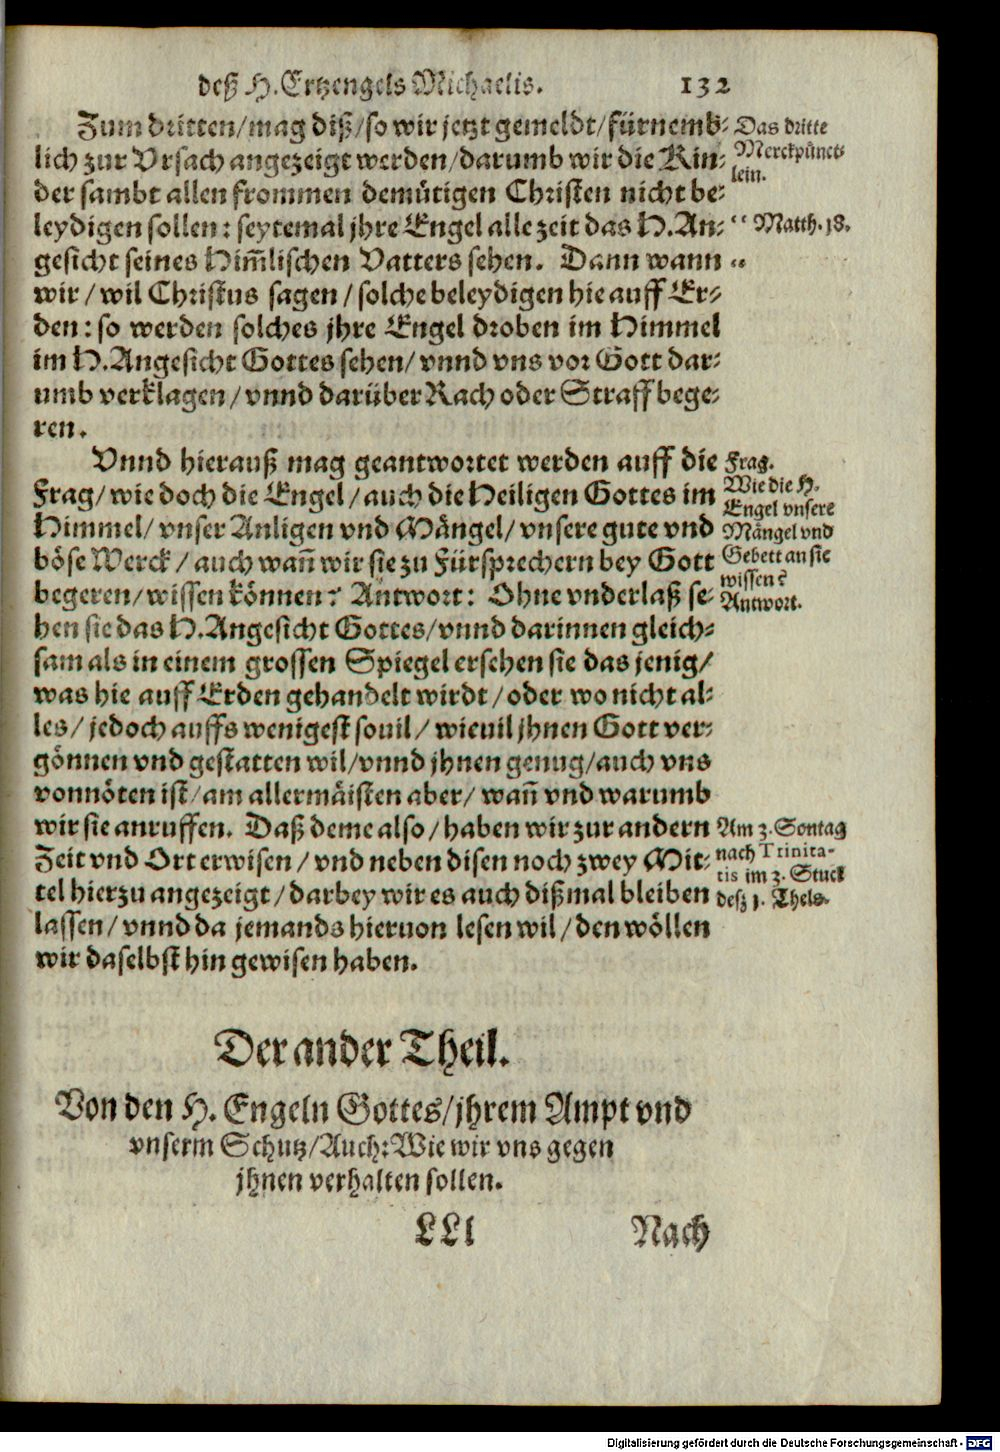 deß H. Ertzengels Michaelis. 132
Zum dritten/mag diß/so wir jetzt gemeldt/fürnemb-
lich zur Vrsach angezeigt werden/darumb wir die Kin-
der sambt allen frommen demütigen Christen nicht be-
leydigen sollen: seytemal jhre Engel alle zeit das H. An-
gesicht seines Him̃lischen Vatters sehen. Dann wann
wir/wil Christus sagen/solche beleydigen hie auff Er-
den: so werden solches jhre Engel droben im Himmel
im H. Angesicht Gottes sehen/vnnd vns vor Gott dar-
umb verklagen/vnnd darüber Rach oder Straff bege-
ren.
Das dritte
Merckpünct-
lein.
" Matth. 18.
"
Vnnd hierauß mag geantwortet werden auff die
Frag/wie doch die Engel/auch die Heiligen Gottes im
Himmel/vnser Anligen vnd Mängel/vnsere gute vnd
böse Werck/auch wañ wir sie zu Fürsprechern bey Gott
begeren/wissen können? Antwort: Ohne vnderlaß se-
hen sie das H. Angesicht Gottes/vnnd darinnen gleich-
sam als in einem grossen Spiegel ersehen sie das jenig/
was hie auff Erden gehandelt wirdt/oder wo nicht al-
les/jedoch auffs wenigest souil/wieuil jhnen Gott ver-
gönnen vnd gestatten wil/vnnd jhnen genug/auch vns
vonnöten ist/am allermäisten aber/wañ vnd warumb
wir sie anruffen. Daß deme also/haben wir zur andern
Zeit vnd Ort erwisen/vnd neben disen noch zwey Mit-
tel hierzu angezeigt/darbey wir es auch dißmal bleiben
lassen/vnnd da jemands hieruon lesen wil/den wöllen
wir daselbst hin gewisen haben.
Frag.
Wie die H.
Engel vnsere
Mängel vnd
Gebett an sie
wissen?
Antwort.
Am 3. Sontag
nach Trinita-
tis im 3. Stuck
deß 1. Thels.
Der ander Theil.
Von den H. Engeln Gottes/jhrem Ampt vnd
vnserm Schutz/Auch: Wie wir vns gegen
jhnen verhalten sollen.
LLl Nach
Digitalisierung gefördert durch die Deutsche Forschungsgemeinschaft - DFG